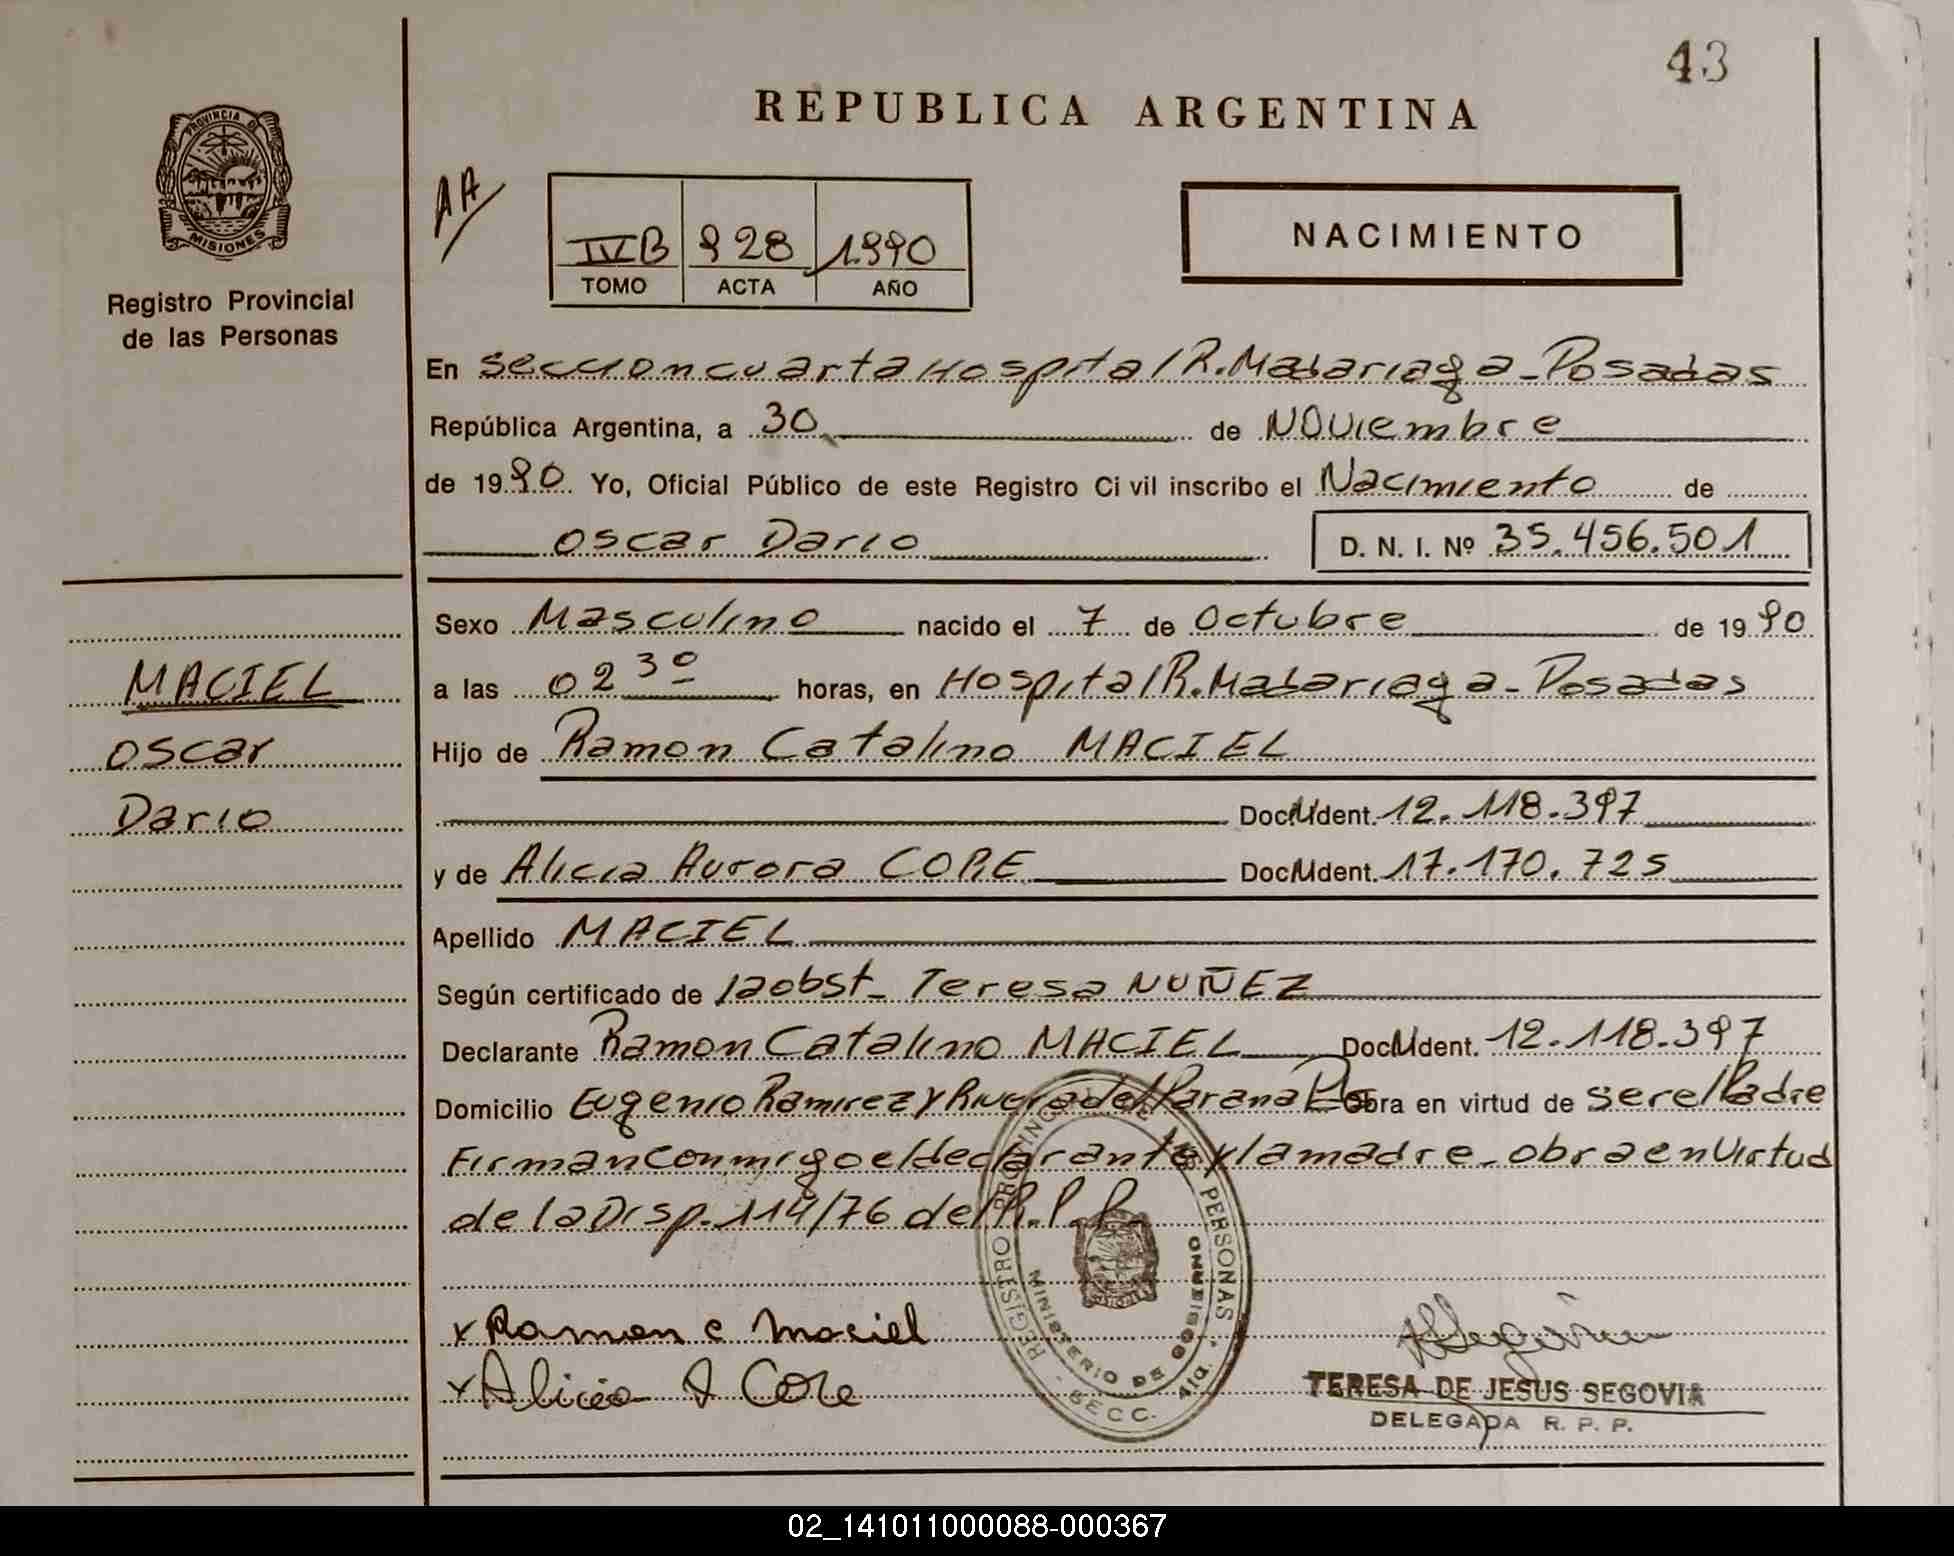 43
REPUBLICA ARGENTINA
PROVINCIA DE
MISIONES
Registro Provincial
de las Personas
AA
IVB 928 1990
TOMO ACTA AÑO
NACIMIENTO
En Seccion cuarta Hospital R. Madariaga - Posadas
República Argentina, a 30 de Noviembre
de 1990 Yo, Oficial Público de este Registro Civil inscribo el Nacimiento de
Oscar Dario D. N. I. Nº 35.456.501
Sexo Masculino nacido el 7 de Octubre de 1990
MACIEL
a las 02 30 horas, en Hospital R. Madariaga - Posadas
Oscar
Hijo de Ramon Catalino MACIEL
Dario
Doc. Ident. 12.118.397
y de Alicia Aurora CORE Doc. Ident. 17.170.725
Apellido MACIEL
Según certificado de la obst - Teresa NUÑEZ
Declarante Ramon Catalino MACIEL Doc. Ident. 12.118.397
Domicilio Eugenio Ramirez y Rivera del Parana Obra en virtud de ser el Padre
Firman conmigo el declarante y la madre - obra en virtud
de la Disp. 114/76 del R.P.P.
x Ramon C Maciel
x Alicia A Core
REGISTRO PROVINCIAL DE LAS PERSONAS
MINISTERIO DE GOBIERNO
SECC. 4ta.
TERESA DE JESUS SEGOVIA
DELEGADA R. P. P.
02_141011000088-000367